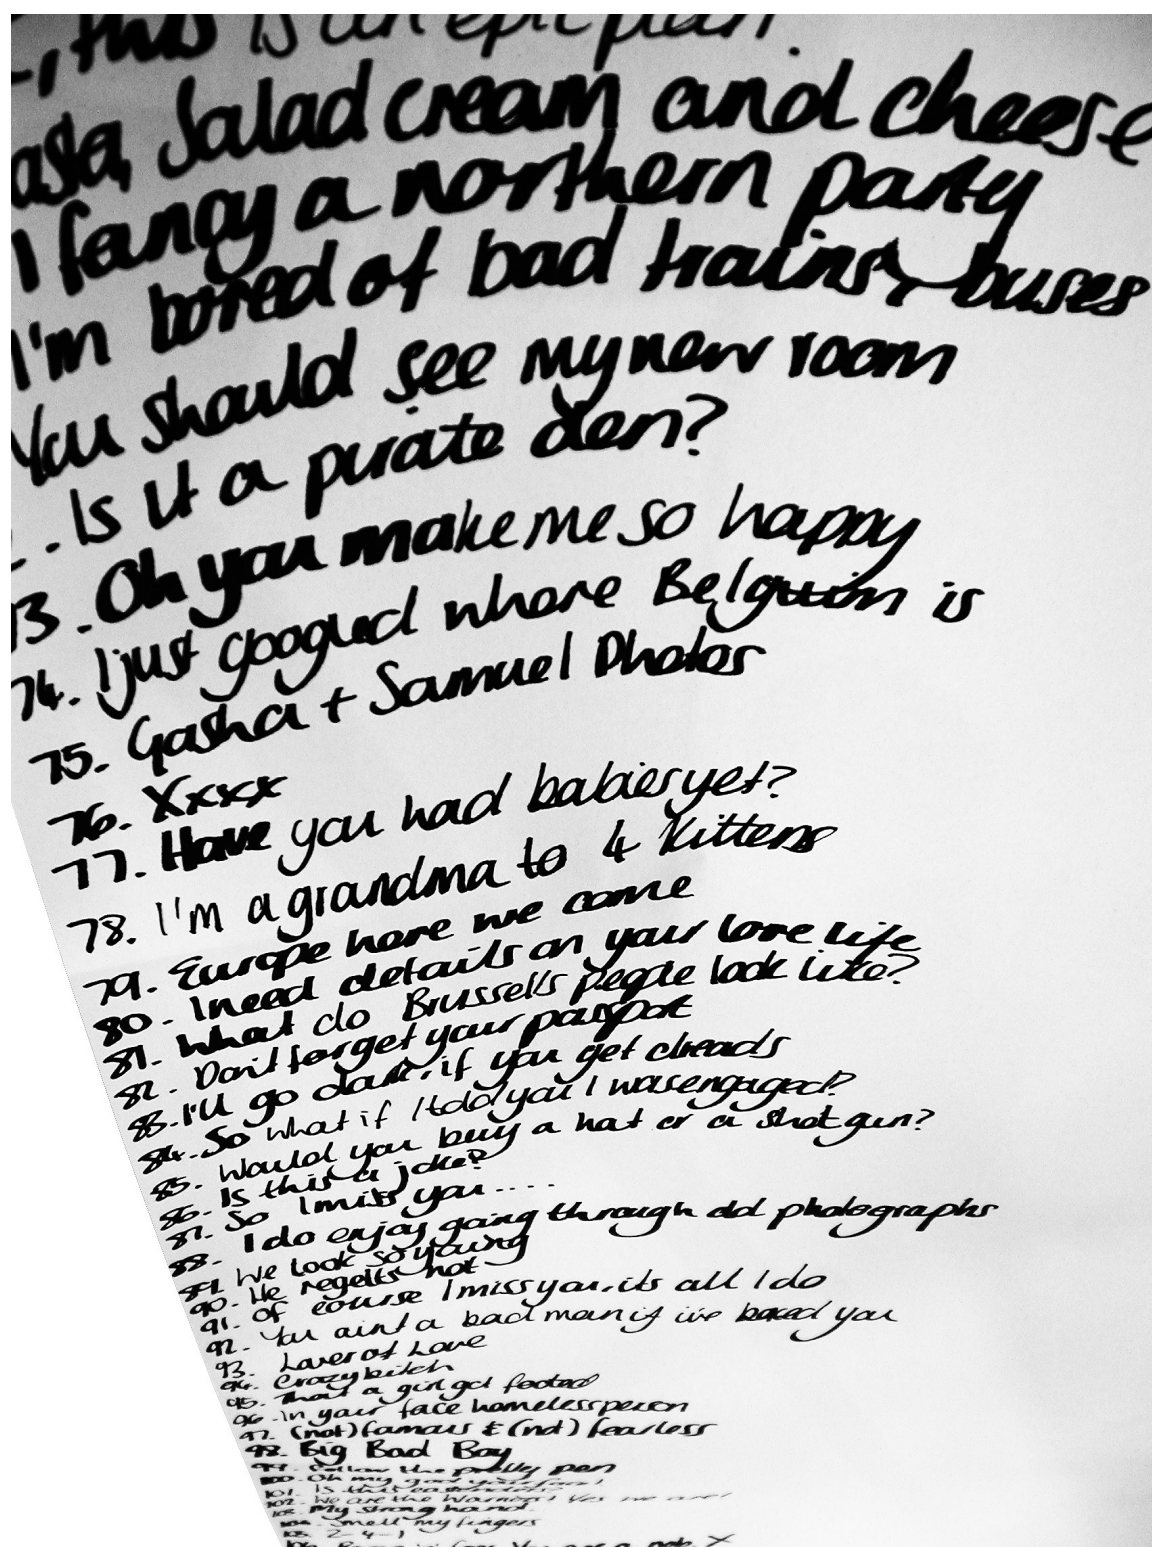 , this is an epic plan.
asta, Salad cream and cheese
I fancy a northern party
I'm bored of bad trains & buses
You should see my new room
. Is it a pirate den?
73. Oh you make me so happy
74. I just googled where Belguim is
75. Gasha + Samuel Photos
76. Xxxx
77. Have you had babies yet?
78. I'm a grandma to 4 kittens
79. Europe here we come
80. I need details on your love life
81. What do Brussells people look like?
82. Don't forget your passport
83. I'll go dark, if you get dreads
84. So what if I told you I was engaged?
85. Would you buy a hat or a shot gun?
86. Is this a joke?
87. So I miss you....
88. I do enjoy going through old photographs
89. We look so young
90. He regrets not
91. Of course I miss you, its all I do
92. You aint a bad man if i've bored you
93. Lover of Love
94. Crazy bitch
95. That a girl got footed
96. In your face homeless person
97. (not) famous & (not) fearless
98. Big Bad Boy
99. Follow the pretty pen
100. Oh my god your
101. Is this eastenders?
102. We are the Warriors! Yes we are!
103. My strong hand.
104. Smell my fingers
105. 2-4-1
106. X